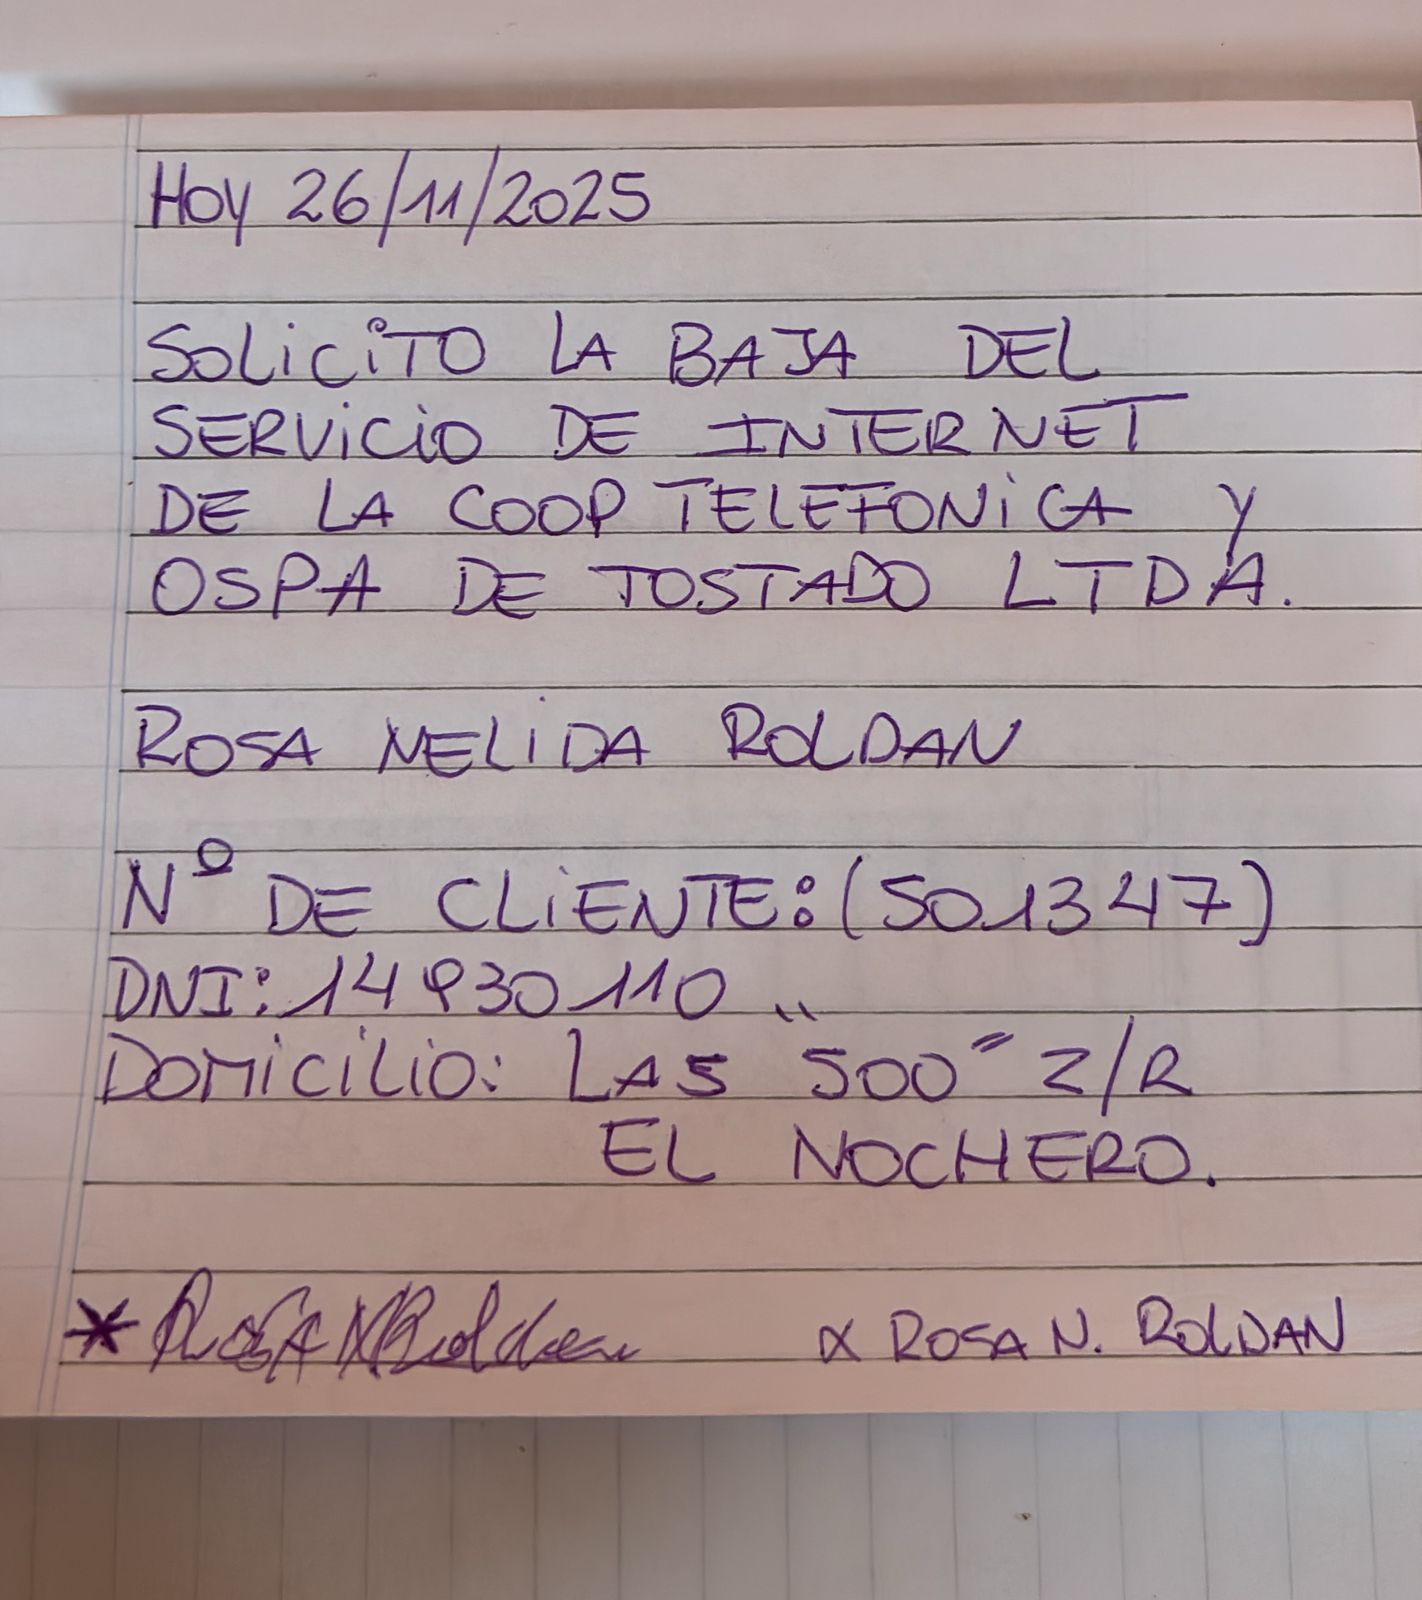 Hoy 26/11/2025
SOLiCiTO LA BAJA DEL
SERViCiO DE INTERNET
DE LA COOP TELEFONiCA Y
OSPA DE TOSTADO LTDA.
ROSA NELiDA ROLDAN
Nº DE CLiENTE: (501347)
DNI: 14930110
DOMiCiLiO: LAS "500" Z/R
EL NOCHERO.
* Rosa N Roldan
x ROSA N. ROLDAN